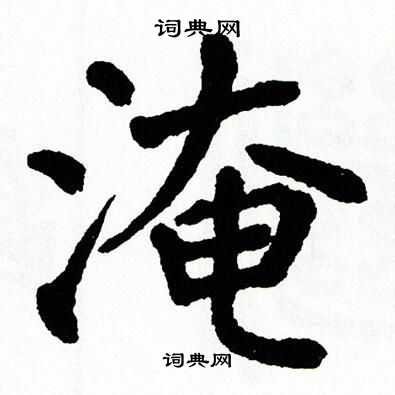 词典网
淹
词典网